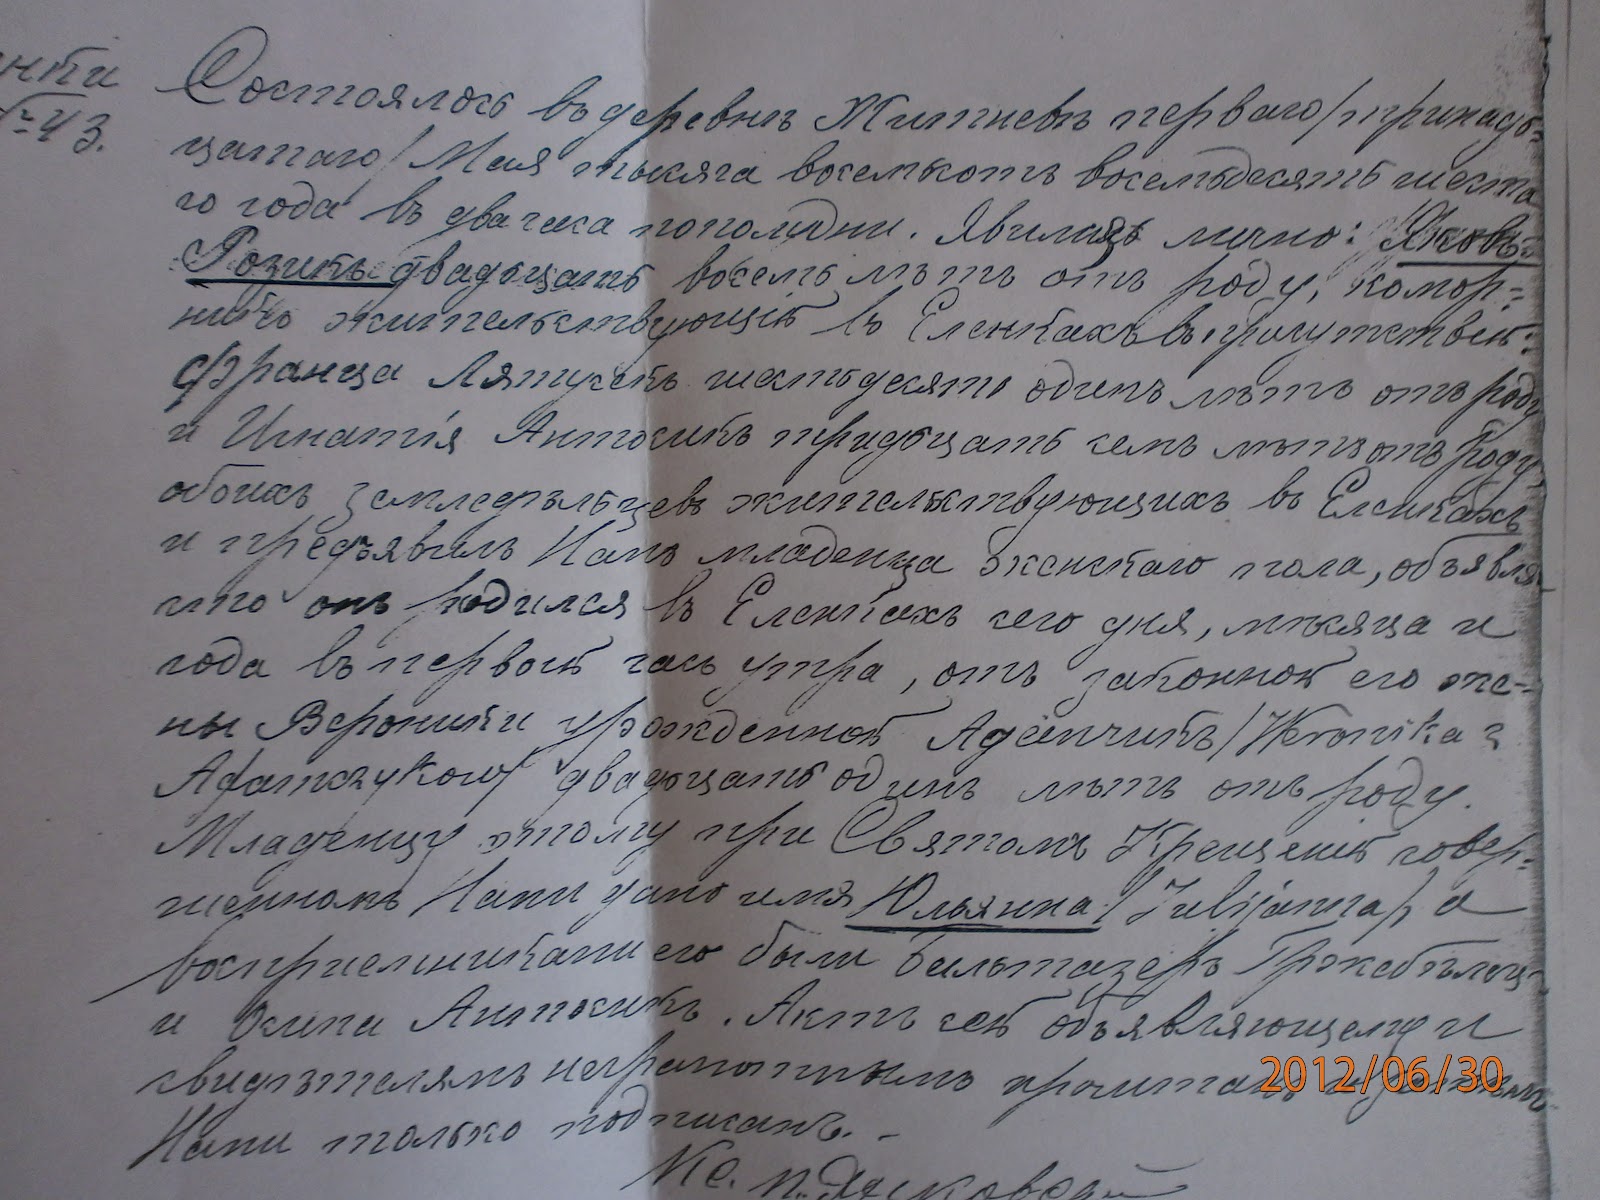 нки
№ 43.
Состоялось въ деревнѣ Житневѣ перваго /тринадь=
цатаго/ Мая тысяча восемьсотъ восемьдесятъ шеста
го года въ два часа пополудни. Явилась лично: Яковъ=
Розикъ двадьцать восемь лѣтъ отъ роду, комор=
никъ жительствующій въ Еленкахъ въ присутствіи:
Франца Лятусекъ шестьдесять одинъ лѣтъ отъ роду
и Игнатія Антосикъ тридьцать семь лѣтъ отъ роду,
обоихъ земледѣльцевъ жительствующихъ въ Еленкахъ
и предъявилъ Намъ младенца женскаго пола, объявля
что онъ родился въ Еленкахъ сего дня, мѣсяца и
года въ первой часъ утра, отъ законной его же=
ны Вероники урожденной Адамчикъ /Weronika z
двадьцать одинъ лѣтъ отъ роду.
Младенцу этому при Святомъ Крещеніи совер=
шенномъ Нами дано имя Юльянна /Julijanna/ а
воспріемниками его были Бальтазеръ
и Антосикъ. Актъ сей объявляющему и
свидѣтелямъ неграмотнымъ прочитанъ
Нами только подписанъ. -
Кс.
2012/06/30